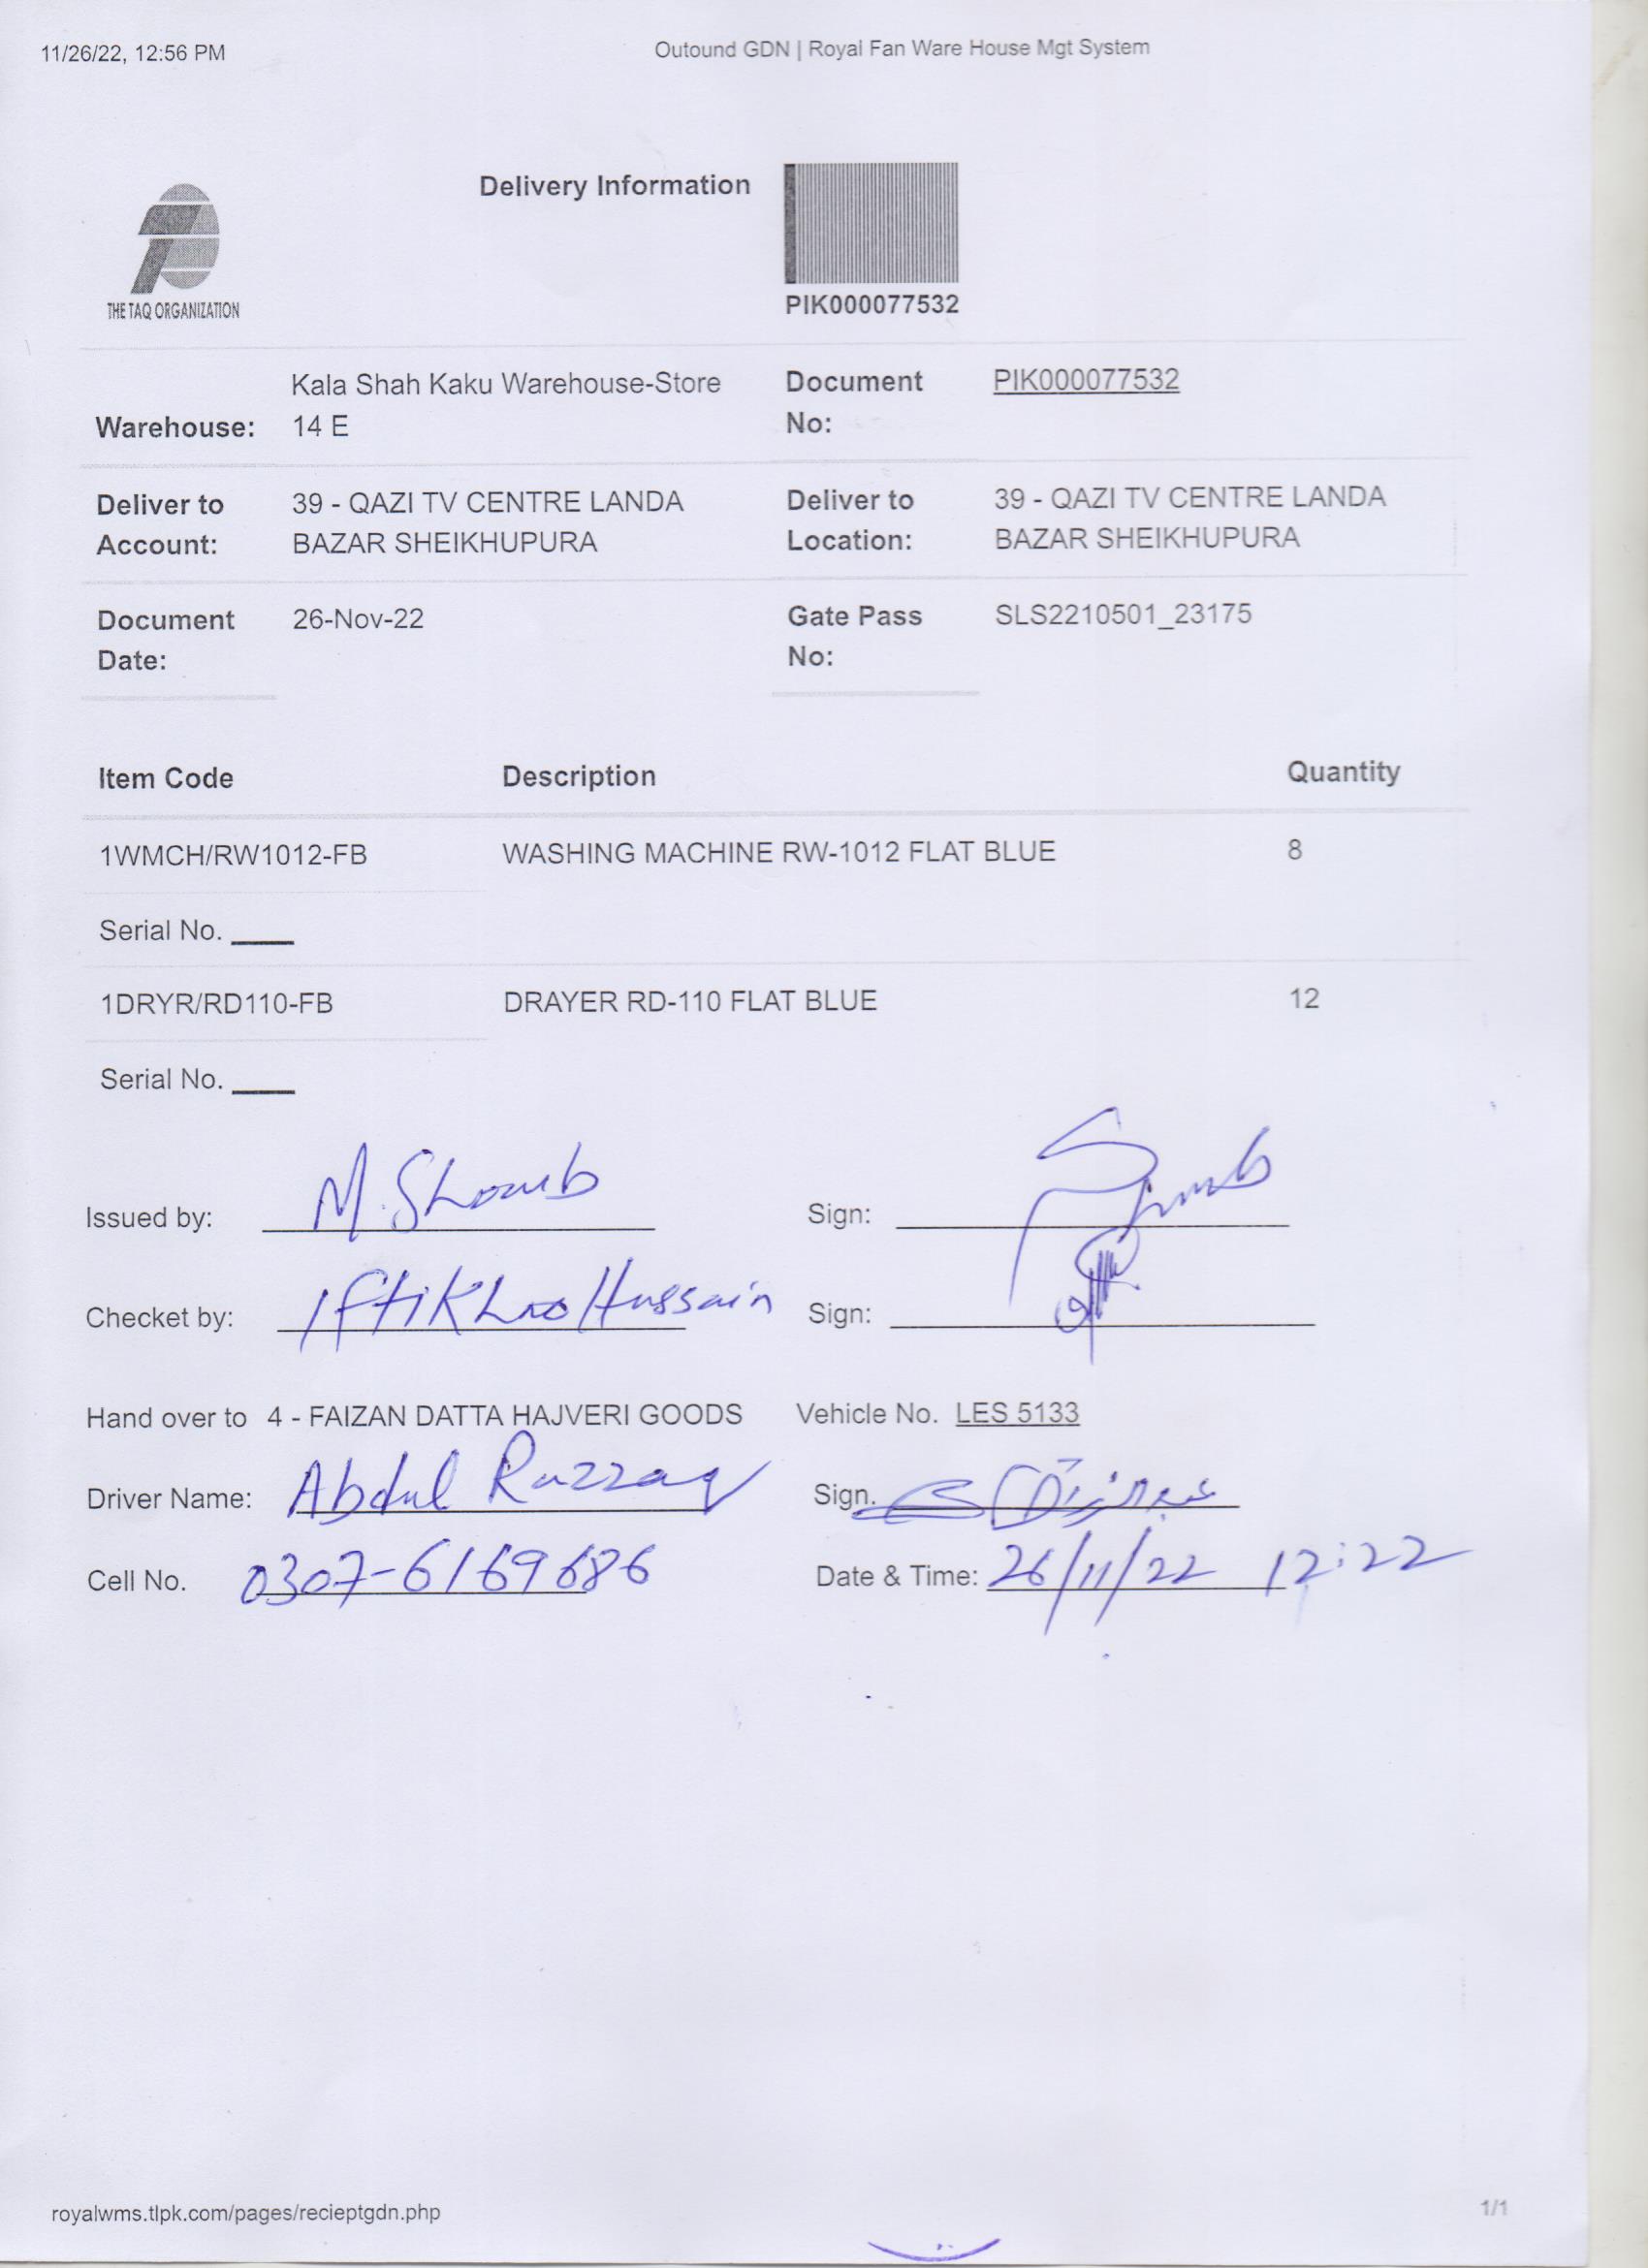 11/26/22, 12:56 PM
Outound GDN | Royal Fan Ware House Mgt System
Delivery Information
THE TAQ ORGANIZATION
PIK000077532
Warehouse: Kala Shah Kaku Warehouse-Store
14 E
Document
No: PIK000077532
Deliver to
Account: 39 - QAZI TV CENTRE LANDA
BAZAR SHEIKHUPURA
Deliver to
Location: 39 - QAZI TV CENTRE LANDA
BAZAR SHEIKHUPURA
Document
Date: 26-Nov-22
Gate Pass
No: SLS2210501_23175
Item Code Description Quantity
1WMCH/RW1012-FB WASHING MACHINE RW-1012 FLAT BLUE 8
Serial No. ____
1DRYR/RD110-FB DRAYER RD-110 FLAT BLUE 12
Serial No. ____
Issued by: M. Shoaib Sign:
Checket by: Iftikhar Hussain Sign:
Hand over to 4 - FAIZAN DATTA HAJVERI GOODS Vehicle No. LES 5133
Driver Name: Abdul Razzaq Sign. عبدالرزاق
Cell No. 0307-6169686 Date & Time: 26/11/22 12:22
royalwms.tlpk.com/pages/recieptgdn.php
1/1